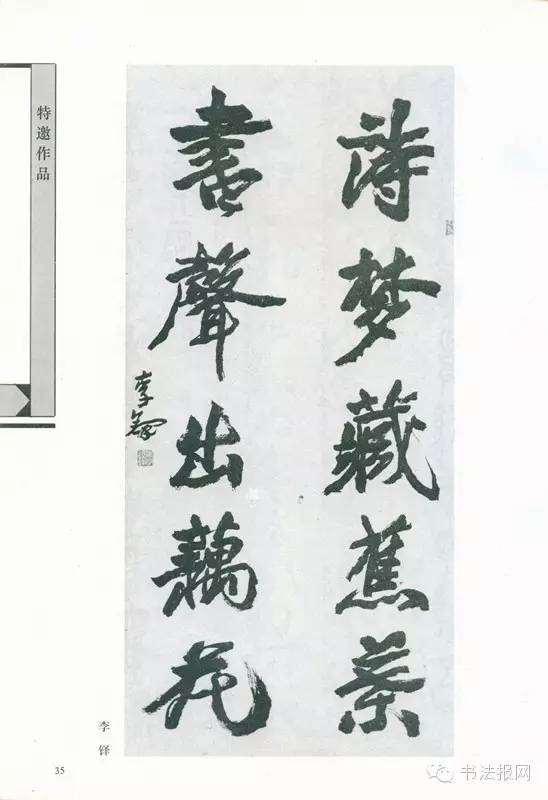 特邀作品
詩梦藏蕉葉
書聲出藕花
李鐸
李铎
35
书法报网